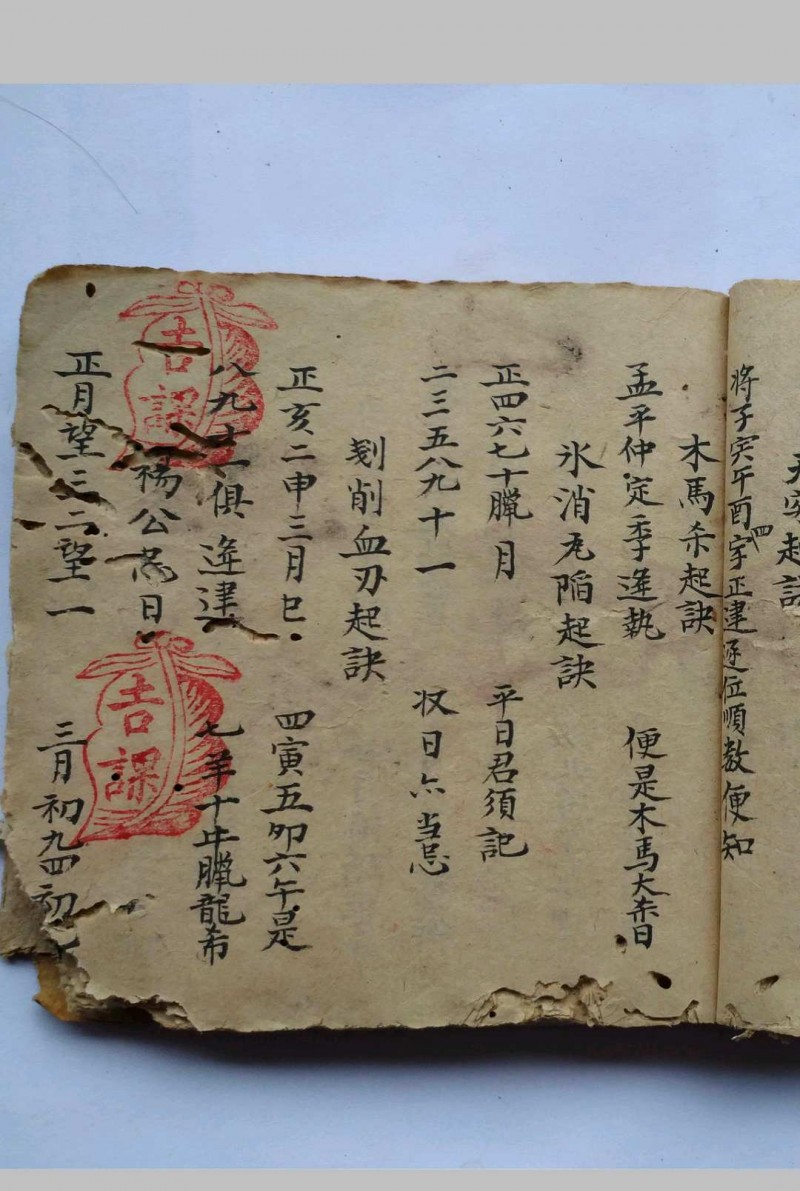 起訣
將子寅午酉字四正建逐位順数便知
木馬杀起訣
孟平仲定季逢執 便是木馬大杀日
氷消瓦陷起訣
正四六七十臘月 平日君須記
二三五八九十一 收日亦当忌
剗削血刃起訣
正亥二申三月巳 四寅五卯六午是
八九十一俱逢建 七羊十牛臘龍希
楊公忌日
正月望三二望一 三月初九四初七
吉課
吉課